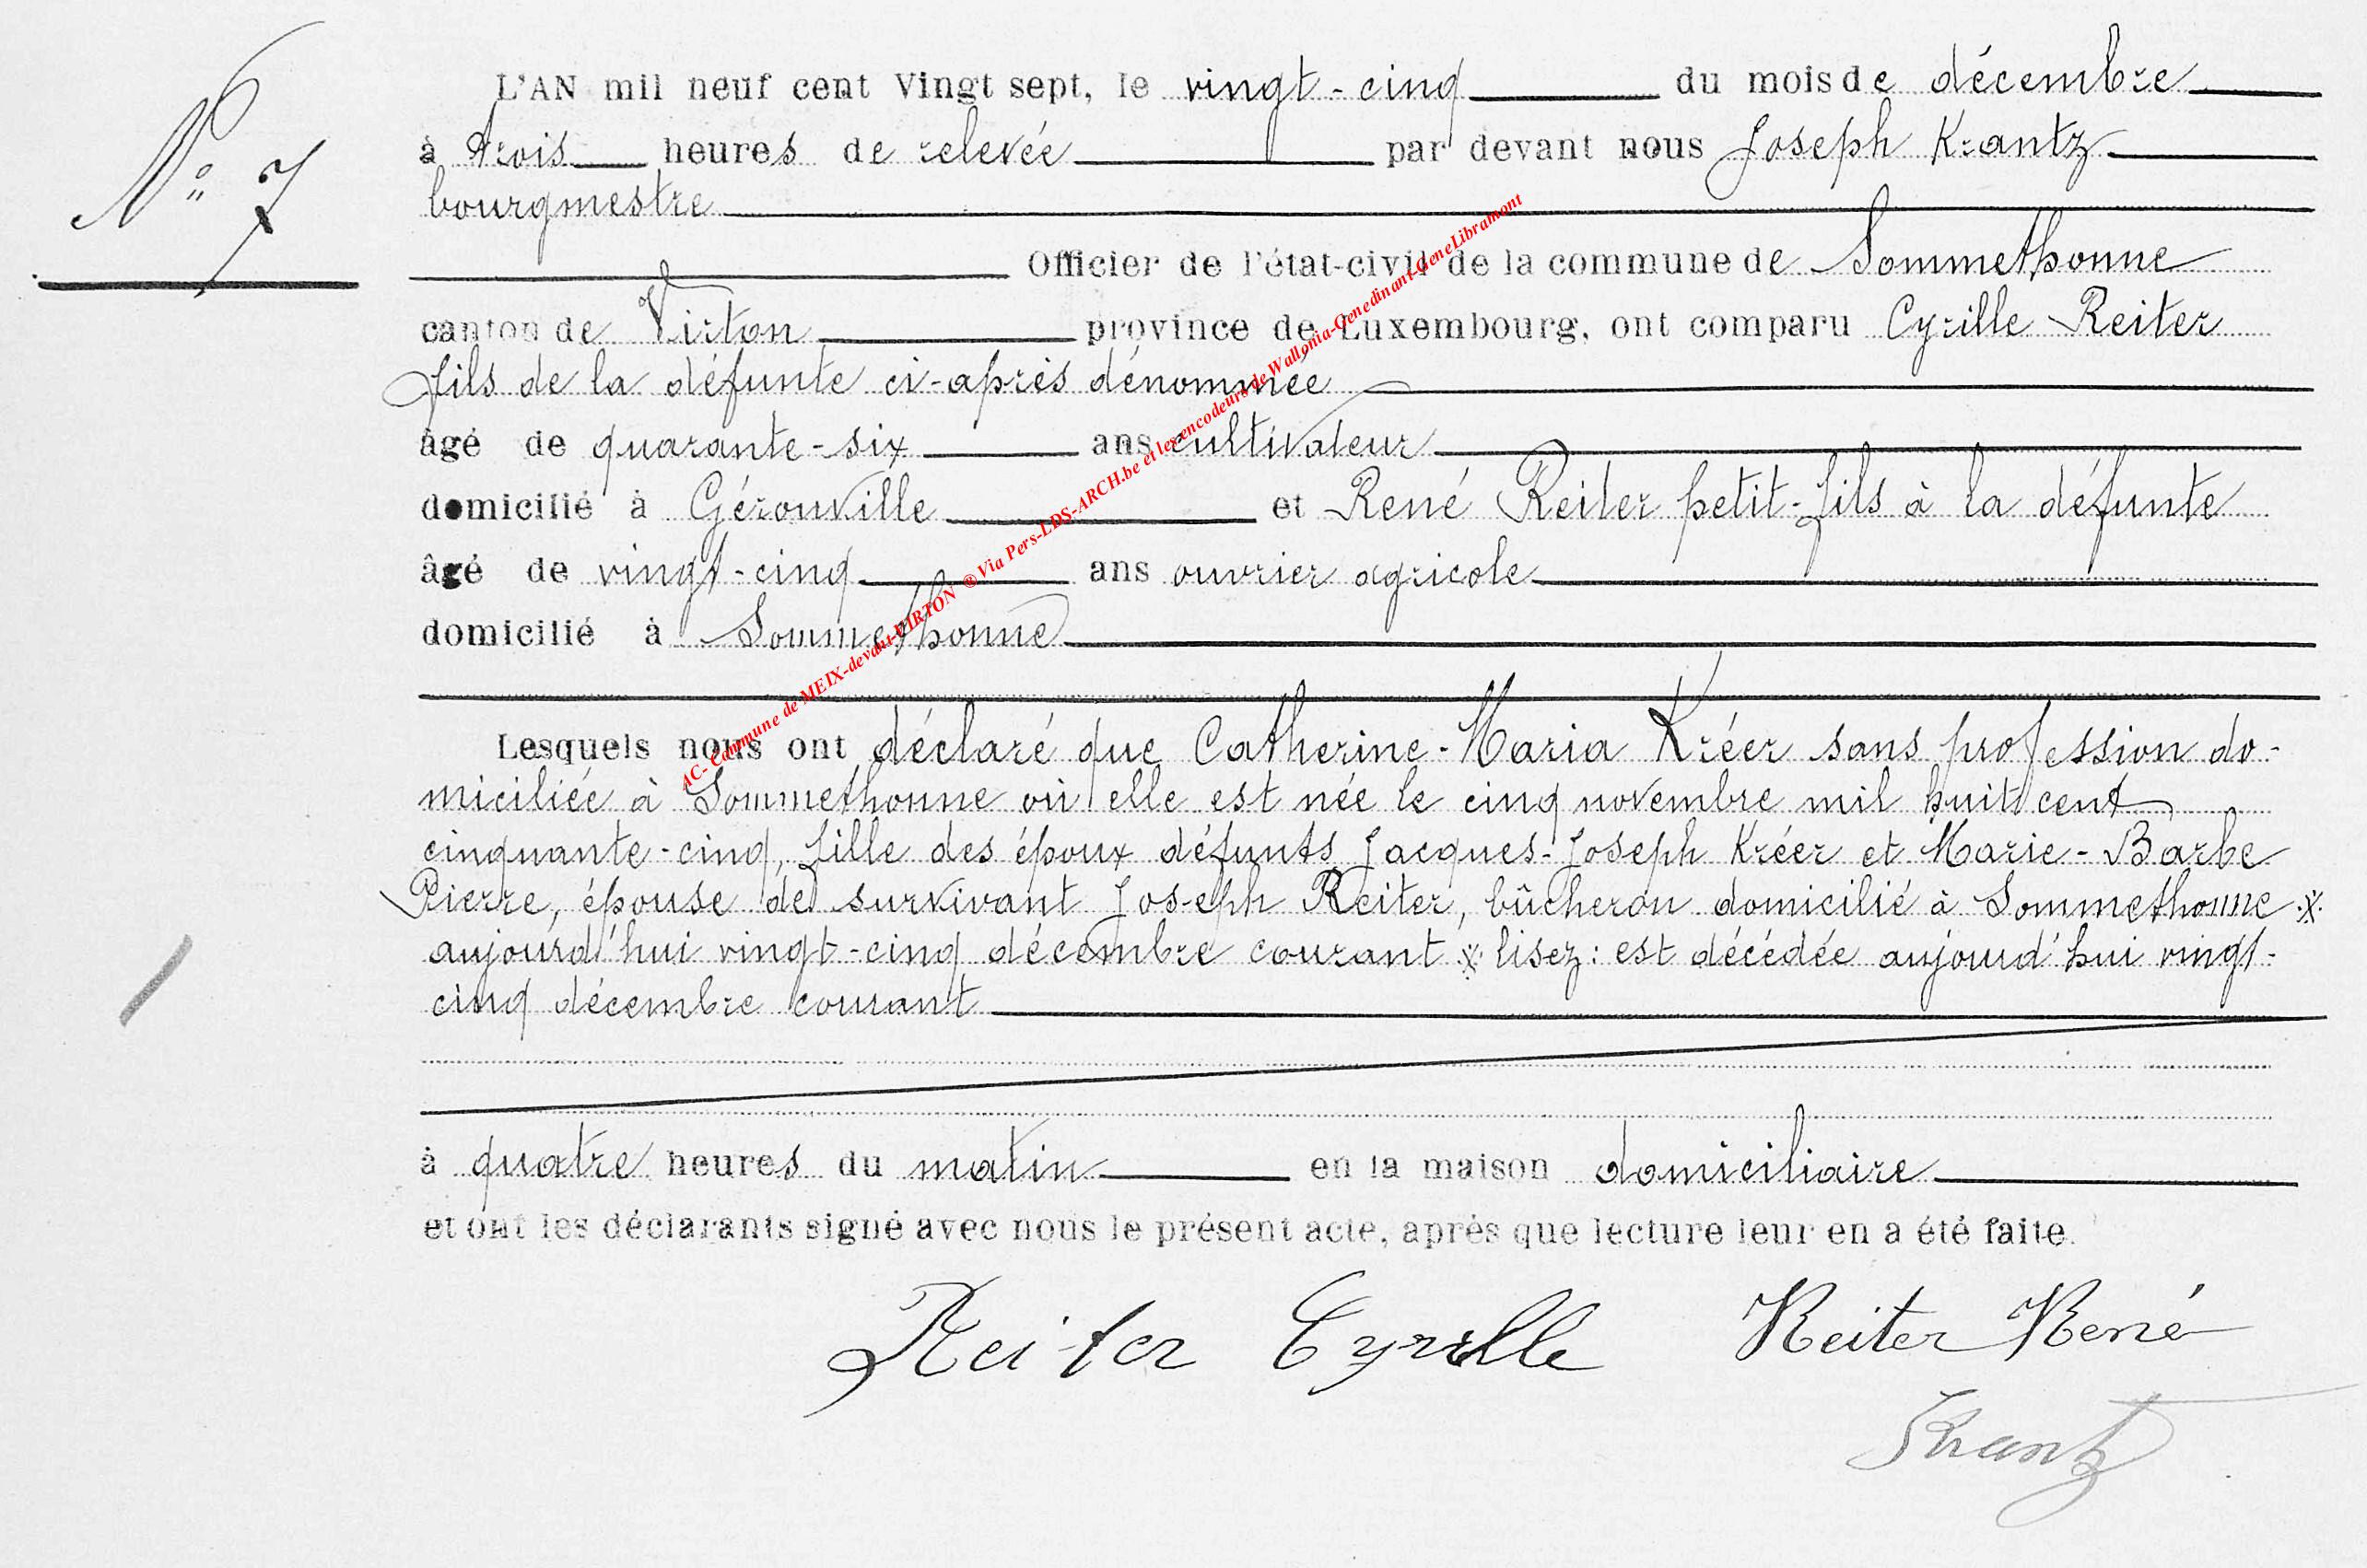 N° 7
L'AN mil neuf cent Vingt sept, le vingt-cinq du mois de décembre
à trois heures de relevée par devant nous Joseph Krantz
bourgmestre
Officier de l'état-civil de la commune de Sommethonne
canton de Virton province de Luxembourg, ont comparu Cyrille Reiter
fils de la défunte ci-après dénommée
âgé de quarante-six ans cultivateur
domicilié à Gérouville et René Reiter petit-fils à la défunte
âgé de vingt-cinq ans ouvrier agricole
domicilié à Sommethonne
Lesquels nous ont déclaré que Catherine-Maria Kréer sans profession do-
miciliée à Sommethonne où elle est née le cinq novembre mil huit cent
cinquante-cinq, fille des époux défunts Jacques-Joseph Kréer et Marie-Barbe
Pierre, épouse de survivant Joseph Reiter, bûcheron domicilié à Sommethonne ※
aujourd'hui vingt-cinq décembre courant ※ lisez: est décédée aujourd'hui vingt-
cinq décembre courant
à quatre heures du matin en la maison domiciliaire
et ont les déclarants signé avec nous le présent acte, après que lecture leur en a été faite.
Reiter Cyrille Reiter René
Krantz
AC-Commune de MEIX-devant-VIRTON ® Via Pers-LDS-ARCH.be et les encodeurs de Wallonia-Genedinant-GeneLibramont